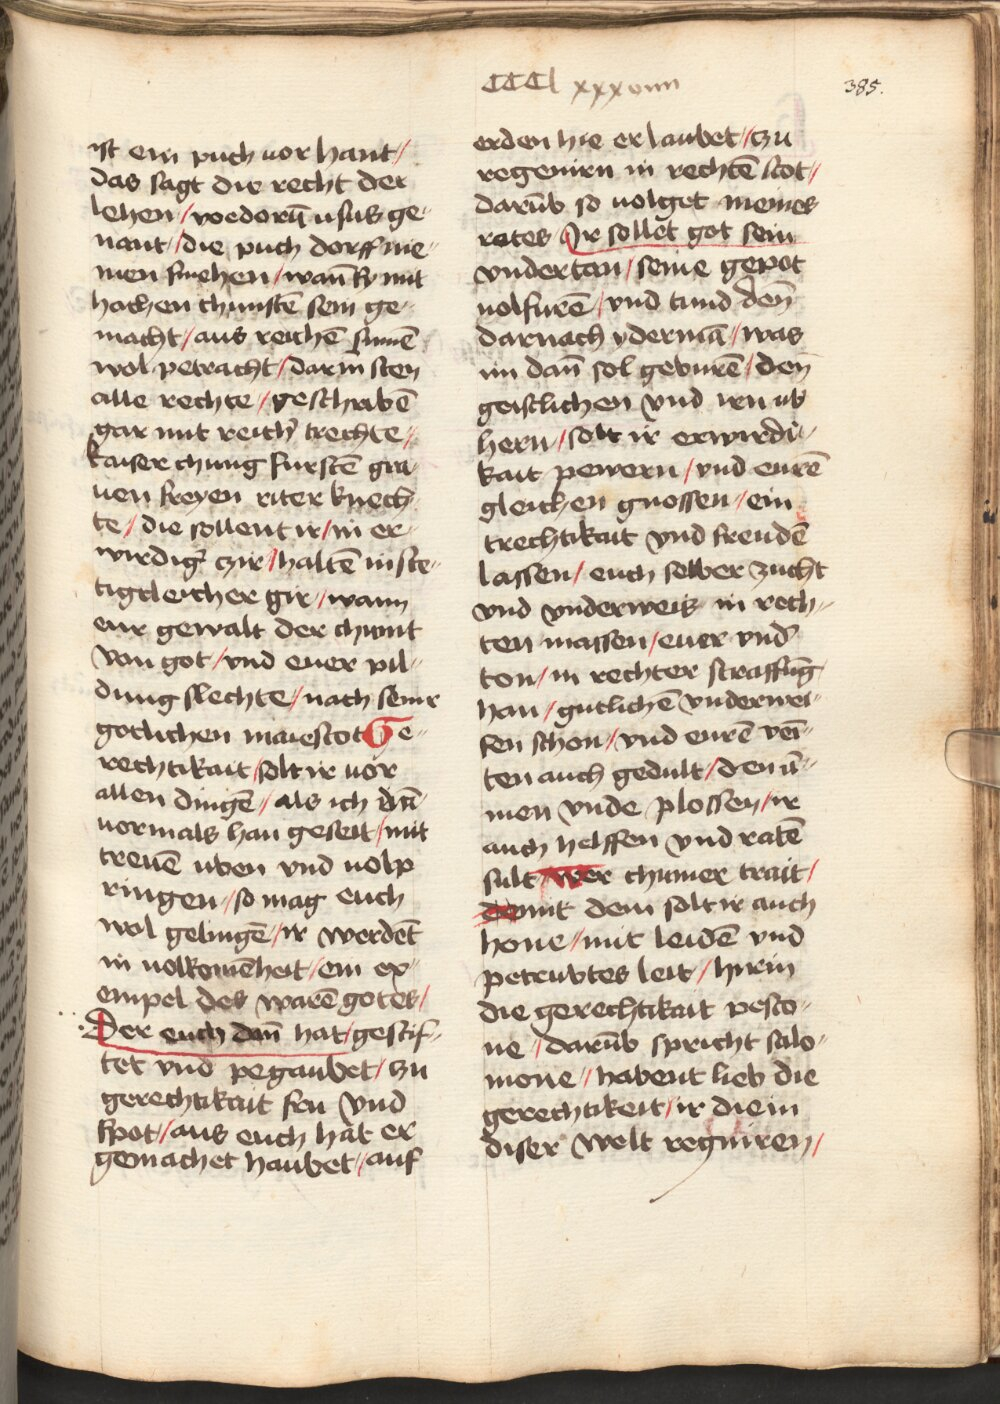 CCCl xxxviiii
385.
ist ein puch vor hant /
das sagt die recht der
lehen / voedorū usus ge-
nant / die puch dorff nie-
men smehen / wann sy mit
hachen chunstē sein ge-
macht / aus reichē sinnē
wol petracht / dar in sten
alle rechte / geschribē
gar mit reich' trechte /
kaiser chunig furstē gra-
uen freyen riter knech-
te / die sollent ir / in er-
wirdig' czir / haltē in ste-
tigcleicher gir / wann
eur gewalt der chumt
von got / vnd euer pil-
dung slechte / nach seinr
gotlichen maiestot Ge-
rechtikait / solt ir vor
allen dingē / als ich dñ
vormals han geseit / mit
treuē vben vnd volp
ringen / so mag euch
wol gelingē / ir werdēt
in volkomēheit / ein ex-
empel des warē gotes /
Der euch dañ hat / gestif-
tet vnd pegaubet / zu
gerechtikait fru vnd
spot / aus euch hat er
gemachet haubet / auf
erden hie erlaubet / zu
regnirn in rechtē stot /
darūb so volget meines
rates Ir sollet got sein
vndertan / seine gepot
volfurē / vnd tund dēn
darnach ydermā / was
im dañ sol geburē / den
geistlichen vnd irn ob
hern / solt ir erwirdi-
kait pewern / vnd eurē
gleichen gnossen / ein
trechtikait vnd freudē
lassen / euch selber zucht
vnd vnderweis in rech-
ten massen / euer vnd'
ton / in rechter straffūg
han / gutlichē vnderwei-
sen schon / vnd eurē vei-
ten auch gedult / den ar-
men vnde plossen / ir
auch helffen vnd ratē
sult / wer chumer trait /
mit dem solt ir auch
hone / mit leidē vnd
petrubtes leit / hirin
die gerechtikait pesco-
ne / darūb spricht salo-
mone / habent lieb die
gerechtikeit / ir die in
diser welt regniren /